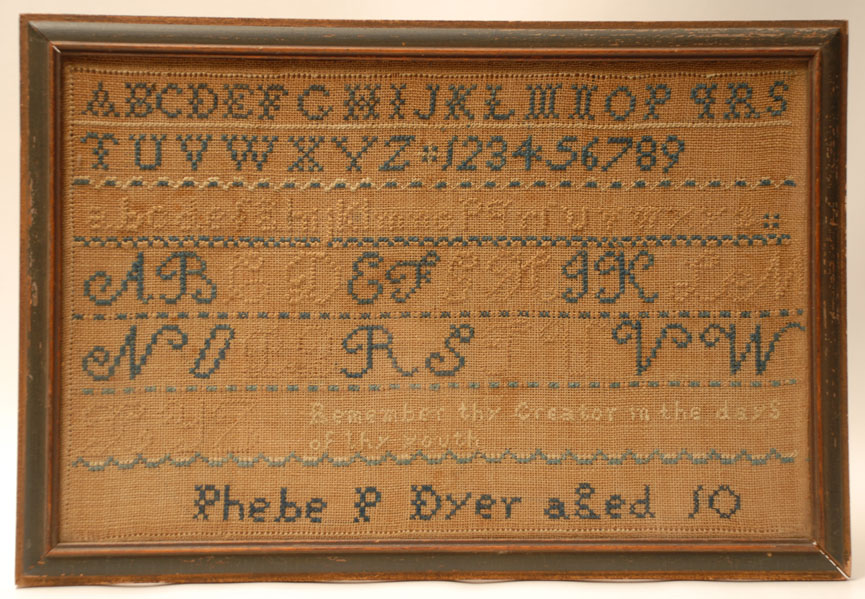 ABCDEFGHIJKLMNOPqRS
TUVWXYZ*123456789
abcdef
AB C D EF G H IJK L M
N O P Q R S T U V W
Remember thy Creator in the days
of thy youth
Phebe P Dyer aged 10